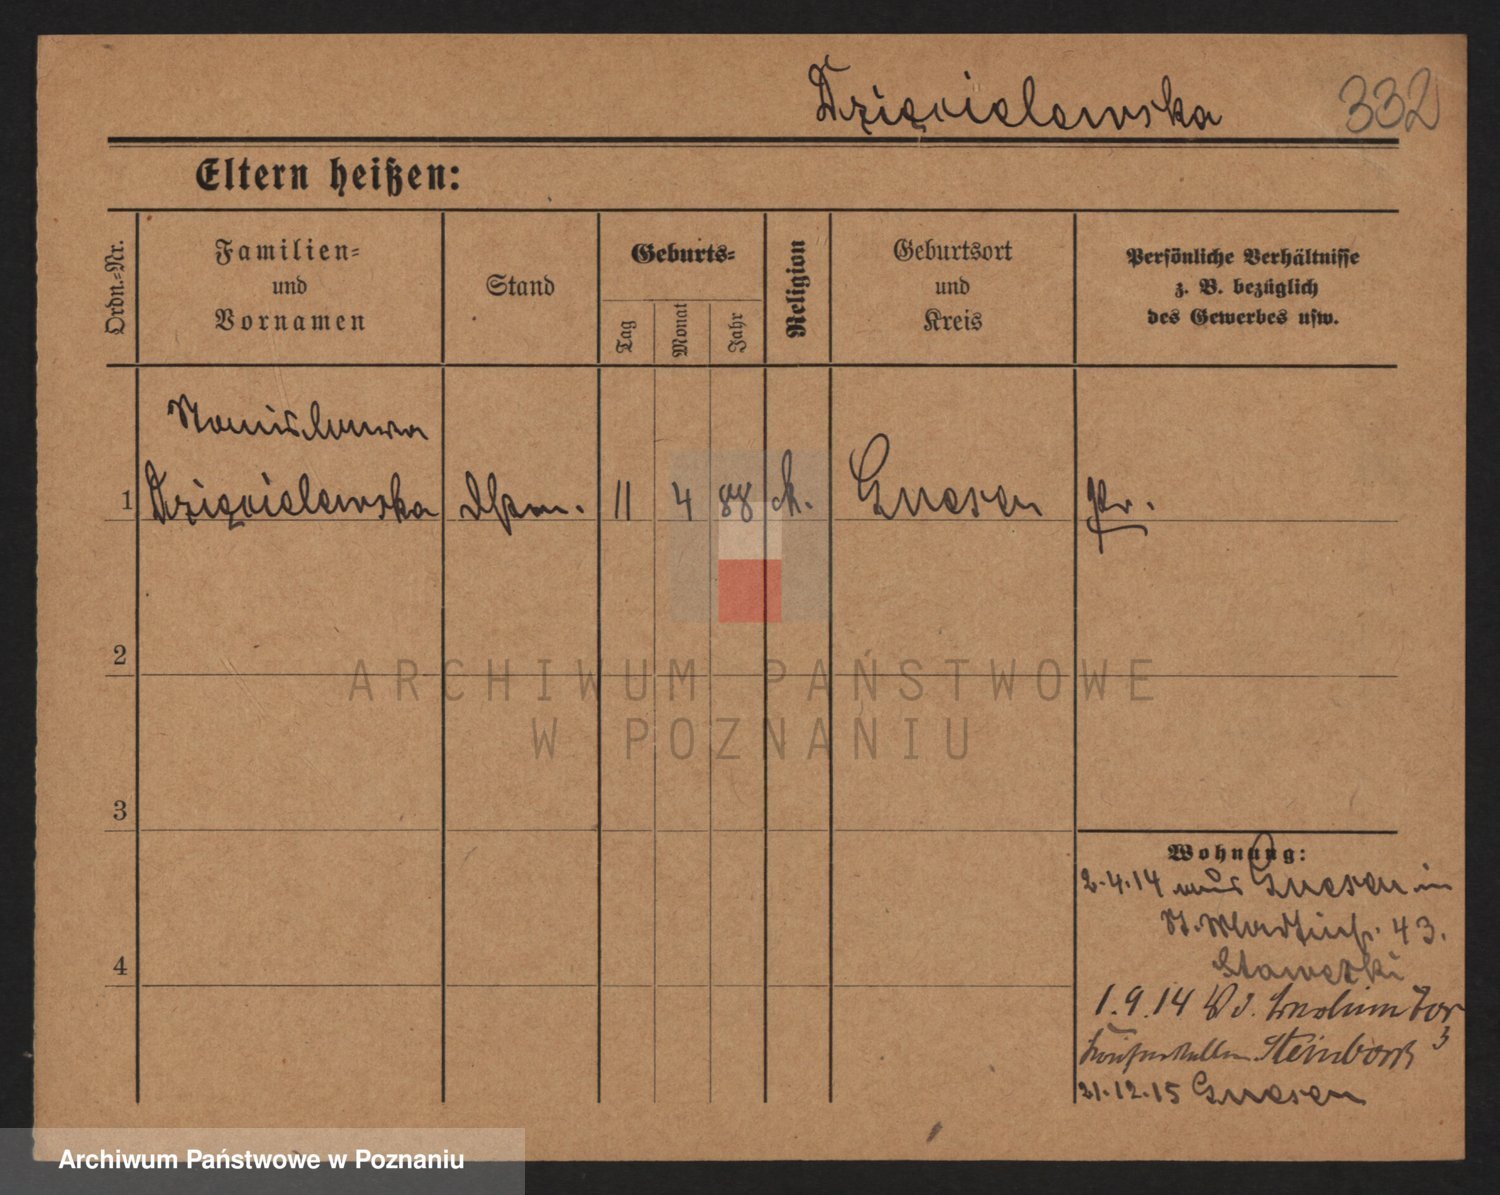 Dzięcielewska 332
Eltern heißen:
Ordn.-Nr.
Familien-
und
Vornamen
Stand
Geburts-
Tag
Monat
Jahr
Religion
Geburtsort
und
Kreis
Persönliche Verhältnisse
z. B. bezüglich
des Gewerbes usw.
Stanisława
1 Dzięcielewska 11 4 88 k. Gnesen Pr.
2
ARCHIWUM PAŃSTWOWE
W POZNANIU
3
Wohnung:
2.4.14 aus Gnesen in
St. 43.
Stawecki
1.9.14
3
Steinborn
21.12.15 Gnesen
4
Archiwum Państwowe w Poznaniu